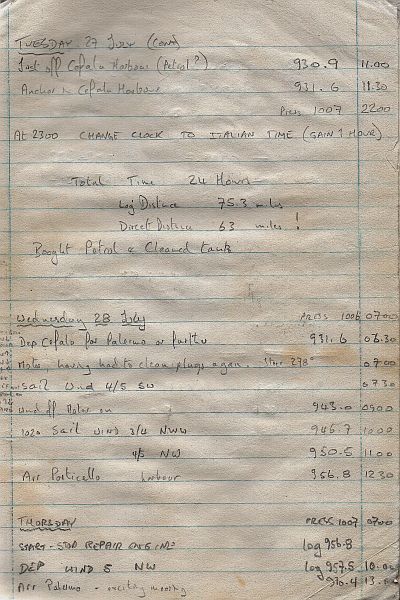 TUESDAY 27 JULY (cont)
Just off Cefalu Harbour (Petrol?) 930.9 11.00
Anchor in Cefalu Harbour 931.6 11.30
Press 1007 2200
At 2300 CHANGE CLOCK TO ITALIAN TIME (GAIN 1 HOUR)
Total Time 24 Hours
Log Distance 75.3 miles
Direct Distance 63 miles !
Bought Petrol & Cleaned tank
Wednesday 28 July PRESS 1006 0700
Dep Cefalu for Palermo or further 931.6 06.30
Motor, having had to clean plugs again. Steer 278° 0700
Sail Wind 4/5 SW 0730
Wind off Motor on 943.0 0900
1020 Sail WIND 3/4 NWW 946.7 1000
4/5 NW 950.5 1100
Arr Porticello harbour 956.8 1230
THURSDAY PRESS 1007 0700
START - STOP REPAIR ENGINE log 956.8
DEP WIND 5 NW log 957.5 10.00
Arr Palermo - exciting mooring 970.4